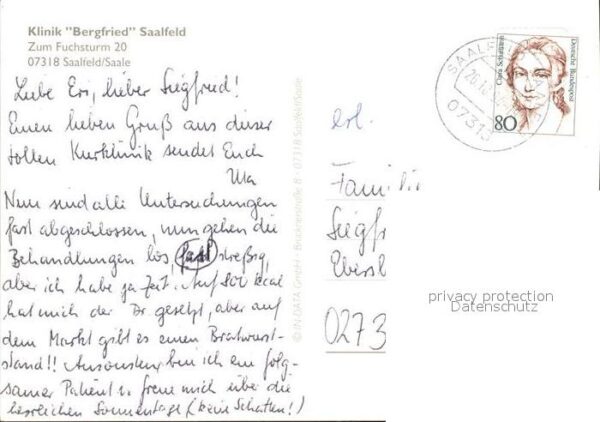 Klinik "Bergfried" Saalfeld
Zum Fuchsturm 20
07318 Saalfeld/Saale
Liebe Evi, lieber Siegfried!
Einen lieben Gruß aus dieser
tollen Kurklinik sendet Euch
Uta
Nun sind alle Untersuchungen
fast abgeschlossen, nun gehen die
Behandlungen los, stressig,
aber ich habe ja Zeit. Auf 800 kcal
hat mich der Dr. gesetzt, aber auf
dem Markt gibt es einen Bratwurst-
stand!! Ansonsten bin ich ein folg-
samer Patient u. freue mich über die
herrlichen Sonnentage (kein Schatten!)
© IN-DATA GmbH · Brucknerstraße 8 · 07318 Saalfeld/Saale
Clara Schumann
Deutsche Bundespost
80
SAALFELD
07318
erl.
Famili
Siegfr
Ebersb
0273
privacy protection
Datenschutz